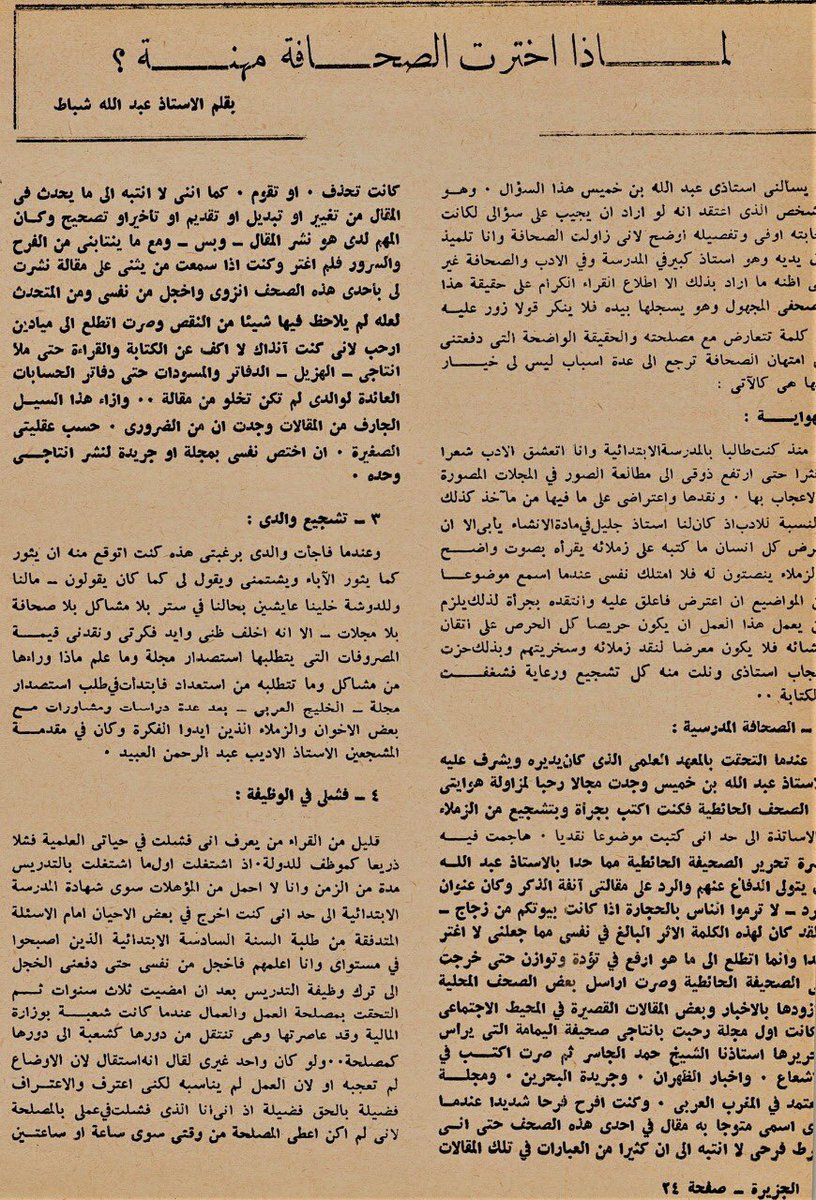 لمـــــاذا اخترت الصحـــافة مهنــــة ؟
بقلم الاستاذ عبد الله شباط
يسألنى استاذى عبد الله بن خميس هذا السؤال ٠ وهــو
شخص الذى اعتقد انه لو اراد ان يجيب على سؤالى لكانت
جابته اوفى وتفصيله اوضح لانى زاولت الصحافة وانا تلميذ
ن يديه وهو استاذ كبيرفي المدرسة وفي الادب والصحافة غير
ى اظنه ما اراد بذلك الا اطلاع القراء الكرام على حقيقة هذا
صحفى المجهول وهو يسجلها بيده فلا ينكر قولا زور عليــه
كلمة تتعارض مع مصلحته والحقيقة الواضحة التى دفعتنى
ى امتهان الصحافة ترجع الى عدة اسباب ليس لى خيــار
ها هى كالآتى :
هوايــة :
منذ كنت طالبا بالمدرسة الابتدائية وانا اتعشق الادب شعرا
نثرا حتى ارتفع ذوقى الى مطالعة الصور في المجلات المصورة
لاعجاب بها ٠ ونقدها واعتراضى على ما فيها من مآخذ كذلك
لنسبة للادب اذ كان لنا استاذ جليل في مادة الانشاء يأبى الا ان
رض كل انسان ما كتبه على زملائه يقرأه بصوت واضــح
الزملاء ينصتون له فلا امتلك نفسى عندما اسمع موضوعــا
ن المواضيع ان اعترض فاعلق عليه وانتقده بجرأة لذلك يلزم
ن يعمل هذا العمل ان يكون حريصا كل الحرص على اتقان
شائه فلا يكون معرضا لنقد زملائه وسخريتهم وبذلك حزت
جاب استاذى ونلت منه كل تشجيع ورعاية فشغفــت
لكتابة ٠٠
ـ الصحافة المدرسية :
عندما التحقت بالمعهد العلمى الذى كان يديره ويشرف عليه
لاستاذ عبد الله بن خميس وجدت مجالا رحبا لمزاولة هوايتى
الصحف الحائطية فكنت اكتب بجرأة وبتشجيع من الزملاء
الاساتذة الى حد انى كتبت موضوعا نقديا ٠ هاجمت فيــه
سرة تحرير الصحيفة الحائطية مما حدا بالاستاذ عبد اللــه
ن يتولى الدفاع عنهم والرد على مقالتى آنفة الذكر وكان عنوان
رد ـ لا ترموا الناس بالحجارة اذا كانت بيوتكم من زجاج ـ
لقد كان لهذه الكلمة الاثر البالغ في نفسى مما جعلنى لا اغتر
بدا وانما اتطلع الى ما هو ارفع في تؤدة وتوازن حتى خرجت
ى الصحيفة الحائطية وصرت اراسل بعض الصحف المحلية
زودها بالاخبار وبعض المقالات القصيرة في المحيط الاجتماعى
كانت اول مجلة رحبت بانتاجى صحيفة اليمامة التى يرأس
حريرها استاذنا الشيخ حمد الجاسر ثم صرت اكتــب في
اشعاع ٠ واخبار الظهران ٠ وجريدة البحرين ٠ ومجلــة
عتمد في المغرب العربى ٠ وكنت افرح فرحا شديدا عندمــا
ى اسمى متوجا به مقال في احدى هذه الصحف حتى انــى
رط فرحى لا انتبه الى ان كثيرا من العبارات في تلك المقالات
كانت تحذف ٠ او تقوم ٠ كما اننى لا انتبه الى ما يحدث فى
المقال من تغيير او تبديل او تقديم او تأخير او تصحيح وكــان
المهم لدى هو نشر المقال ـ وبس ـ ومع ما ينتابنى من الفرح
والسرور فلم اغتر وكنت اذا سمعت من يثنى على مقالة نشرت
لى بأحدى هذه الصحف انزوى واخجل من نفسى ومن المتحدث
لعله لم يلاحظ فيها شيئا من النقص وصرت اتطلع الى ميادين
ارحب لانى كنت آنذاك لا اكف عن الكتابة والقراءة حتى ملأ
انتاجى ـ الهزيل ـ الدفاتر والمسودات حتى دفاتر الحسابات
العائدة لوالدى لم تكن تخلو من مقالة ٠٠ وازاء هذا السيــل
الجارف من المقالات وجدت ان من الضرورى ٠ حسب عقليتى
الصغيرة ٠ ان اختص نفسى بمجلة او جريدة لنشر انتاجــى
وحده ٠
٣ ـ تشجيع والدى :
وعندما فاجأت والدى برغبتى هذه كنت اتوقع منه ان يثور
كما يثور الآباء ويشتمنى ويقول لى كما كان يقولون ـ مالنا
وللدوشة خلينا عايشين بحالنا في ستر بلا مشاكل بلا صحافة
بلا مجلات ـ الا انه اخلف ظنى وايد فكرتى ونقدنى قيمــة
المصروفات التى يتطلبها استصدار مجلة وما علم ماذا وراءها
من مشاكل وما تتطلبه من استعداد فابتدأت في طلب استصدار
مجلة ـ الخليج العربى ـ بعد عدة دراسات ومشاورات مــع
بعض الاخوان والزملاء الذين ايدوا الفكرة وكان في مقدمــة
المشجعين الاستاذ الاديب عبد الرحمن العبيد ٠
٤ ـ فشلى في الوظيفة :
قليل من القراء من يعرف انى فشلت في حياتى العلمية فشلا
ذريعا كموظف للدولة ٠ اذ اشتغلت اول ما اشتغلت بالتدريس
مدة من الزمن وانا لا احمل من المؤهلات سوى شهادة المدرسة
الابتدائية الى حد انى كنت اخرج في بعض الاحيان امام الاسئلة
المتدفقة من طلبة السنة السادسة الابتدائية الذين اصبحوا
في مستواى وانا اعلمهم فاخجل من نفسى حتى دفعنى الخجل
الى ترك وظيفة التدريس بعد ان امضيت ثلاث سنوات ثــم
التحقت بمصلحة العمل والعمال عندما كانت شعبــة بوزارة
المالية وقد عاصرتها وهى تنتقل من دورها كشعبة الى دورها
كمصلحة ٠٠ ولو كان واحد غيرى لقال انه استقال لان الاوضاع
لم تعجبه او لان العمل لم يناسبه لكنى اعترف والاعتــراف
فضيلة بالحق فضيلة اذ انى انا الذى فشلت في عملى بالمصلحة
لانى لم اكن اعطى المصلحة من وقتى سوى ساعة او ساعتــين
الجزيرة ـ صفحة ٢٤